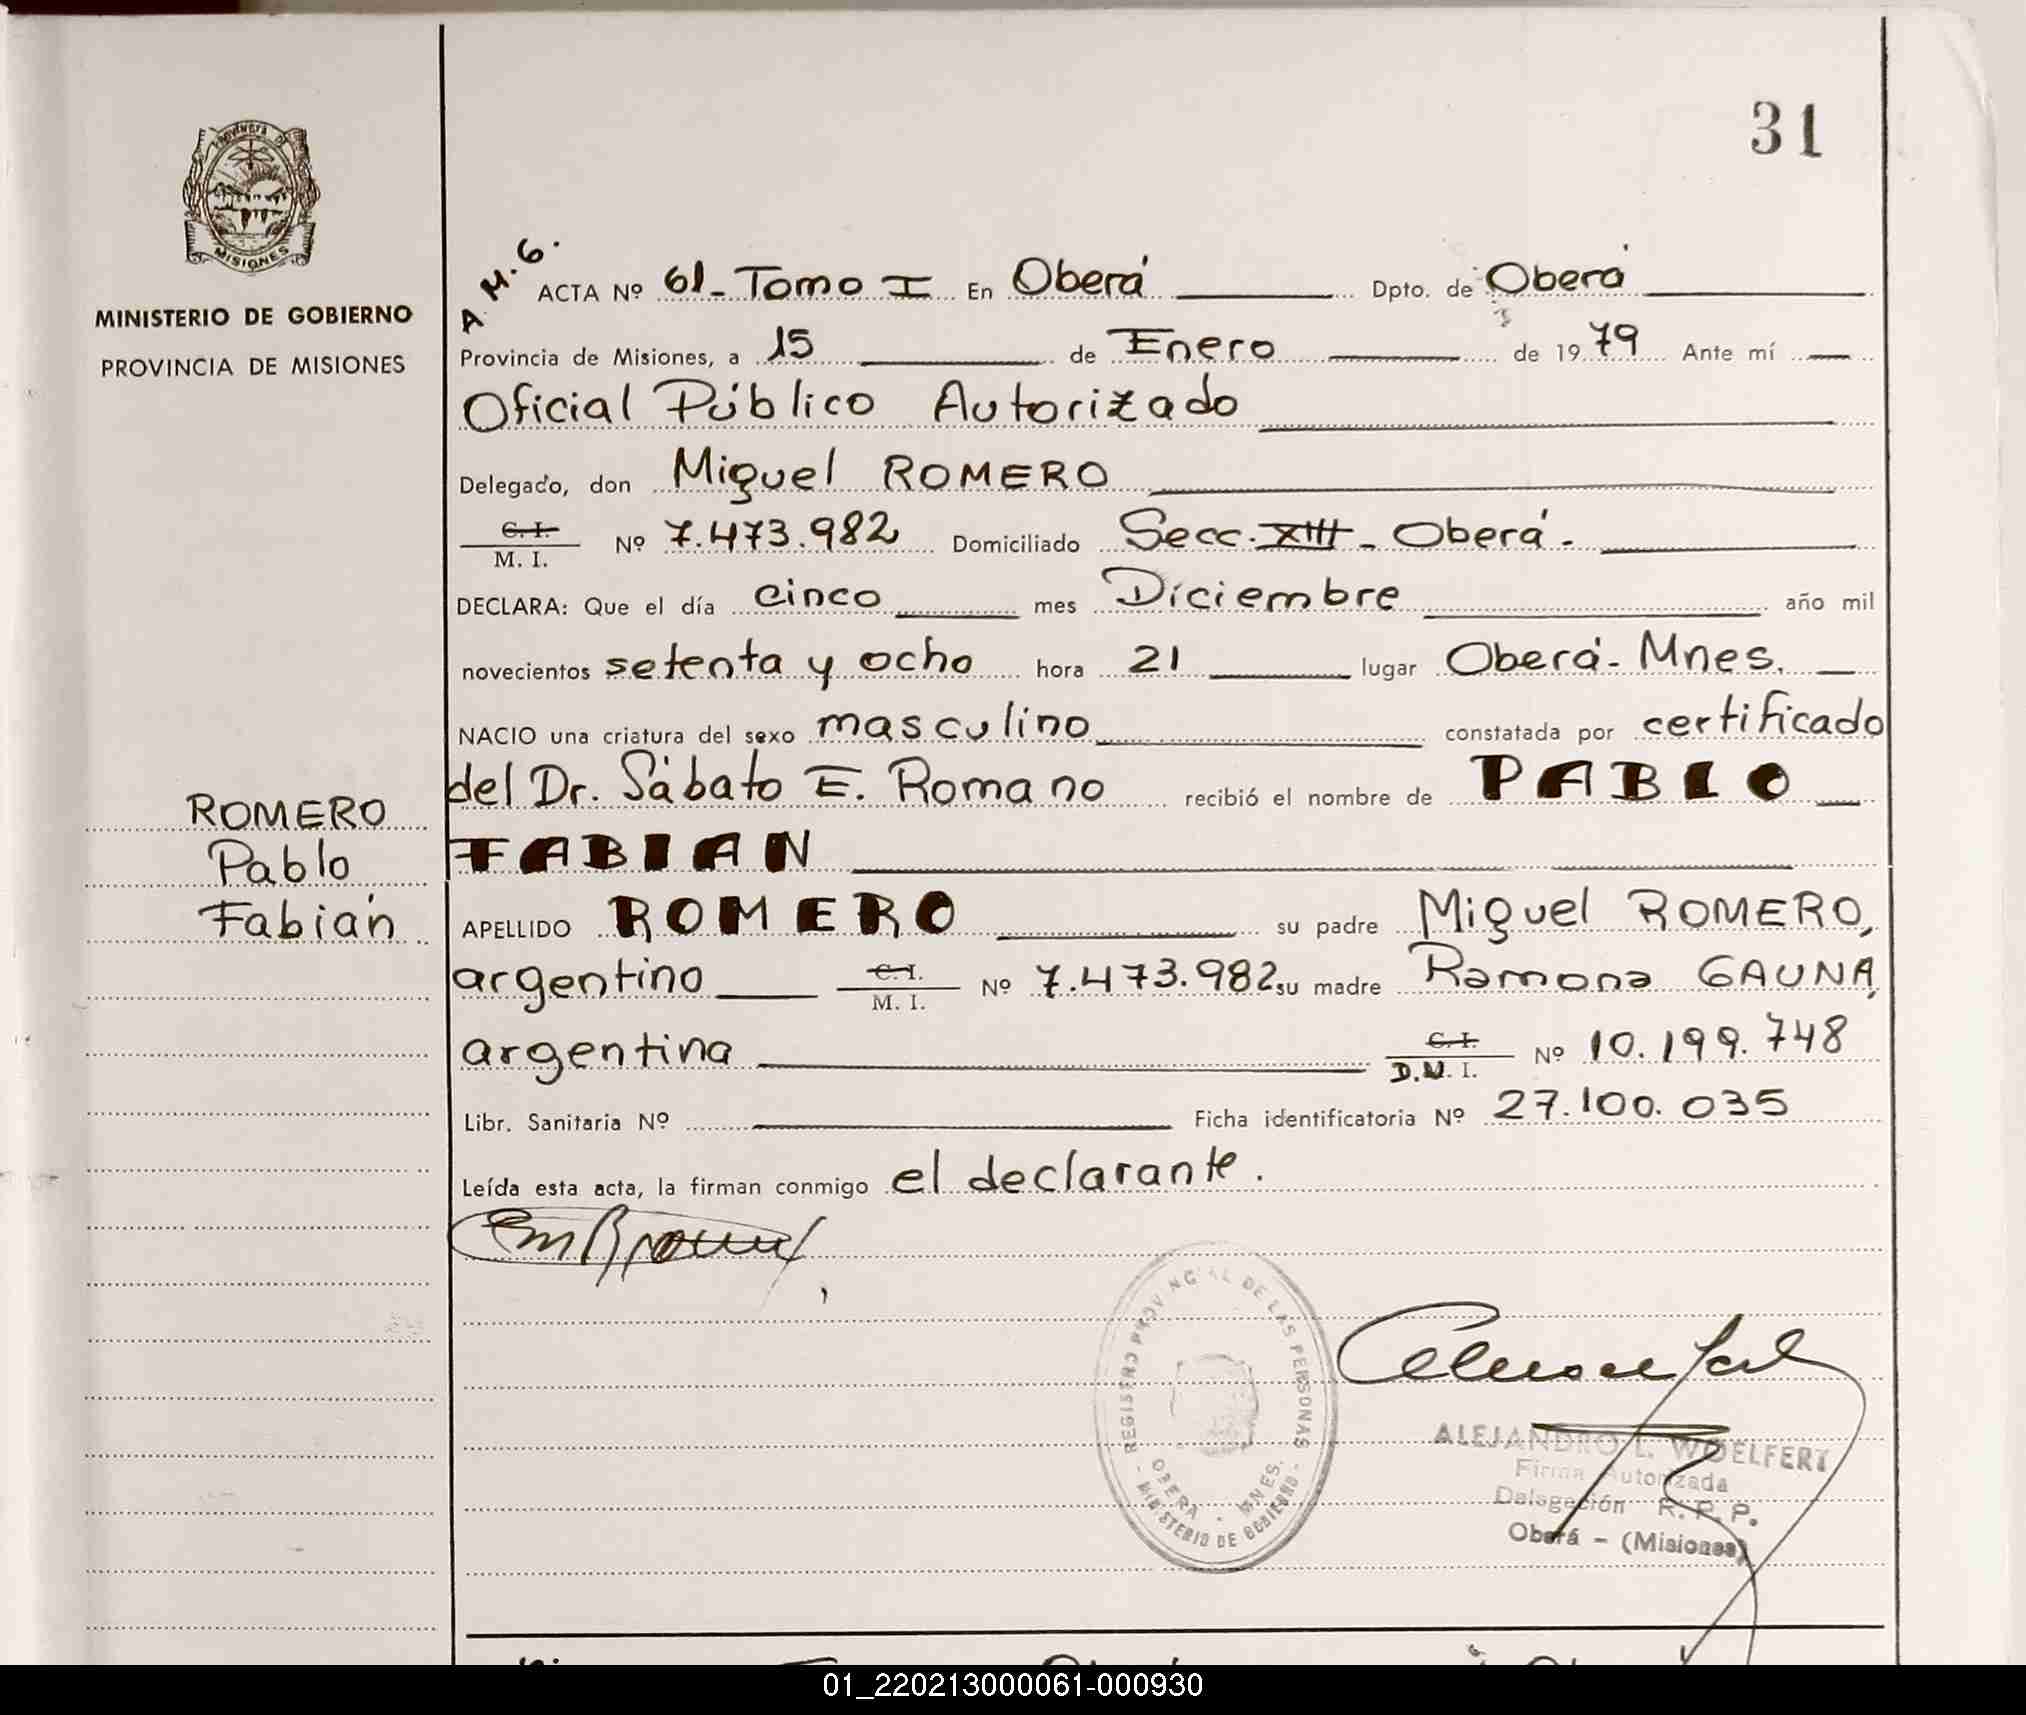 31
PROVINCIA DE
MISIONES
MINISTERIO DE GOBIERNO
PROVINCIA DE MISIONES
A.M.G.
ACTA Nº 61-Tomo I En Oberá Dpto. de Oberá
Provincia de Misiones, a 15 de Enero de 1979 Ante mí
Oficial Público Autorizado
Delegado, don Miguel ROMERO
C. I.
M. I. Nº 7.473.982 Domiciliado Secc. XIII - Oberá.
DECLARA: Que el día cinco mes Diciembre año mil
novecientos setenta y ocho hora 21 lugar Oberá- Mnes.
NACIO una criatura del sexo masculino constatada por certificado
del Dr. Sábato E. Romano recibió el nombre de PABLO
FABIAN
ROMERO
Pablo
Fabián
APELLIDO ROMERO su padre Miguel ROMERO,
argentino C. I.
M. I. Nº 7.473.982 su madre Ramona GAUNA,
argentina C. I.
D.N. I. Nº 10.199.748
Libr. Sanitaria Nº Ficha identificatoria Nº 27.100.035
Leída esta acta, la firman conmigo el declarante.
REGISTRO PROVINCIAL DE LAS PERSONAS
OBERA - MNES.
- MINISTERIO DE GOBIERNO -
ALEJANDRO L. WOELFERT
Firma Autorizada
Delegación R. P. P.
Oberá - (Misiones)
01_220213000061-000930